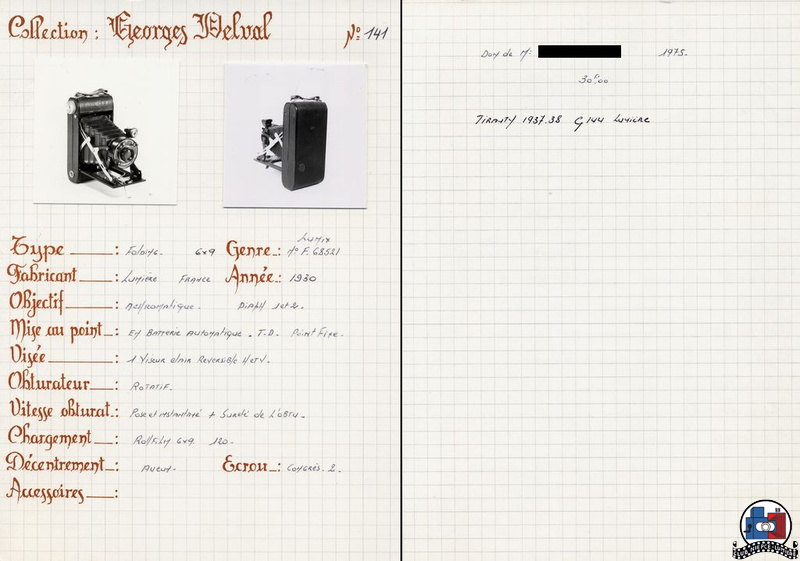 Collection : Georges Delval Nº 141
Type : Folding. 6x9 Genre : Lumix Nº F. 68521
Fabricant : Lumière France Année : 1930
Objectif : Achromatique. Diaph 1et2.
Mise au point : En Batterie Automatique. T.D. Point Fixe.
Visée : 1 Viseur clair Reversible H et V.
Obturateur : Rotatif.
Vitesse obturat. : Pose et instantané + Sureté de l'obtu.
Chargement : Rollfilm 6x9. 120.
Décentrement : Aucun. Ecrou : Congrès. 2.
Accessoires :
Don de Mr 1975.
30F00
Tiranty 1937.38 G 144 Lumière